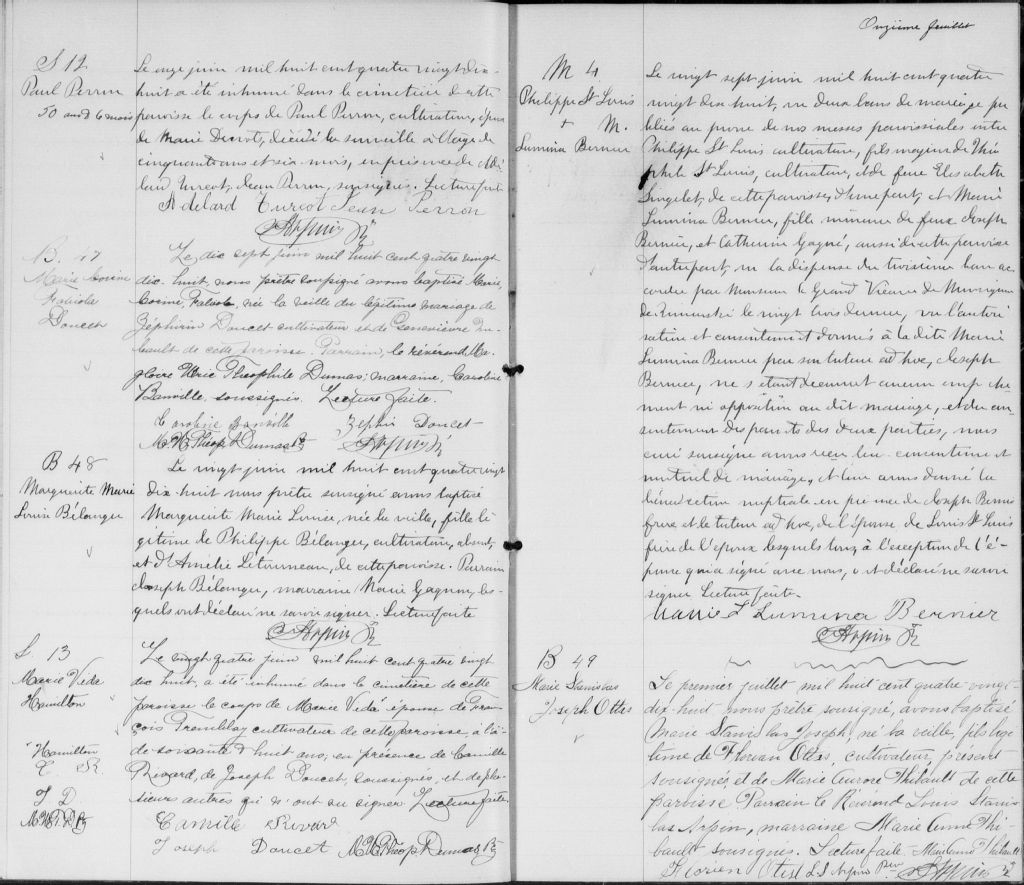 S 12
Paul Perron
50 ans & 6 mois
Le onze juin mil huit cent quatre vingt dix
huit a été inhumé dans le cimetière de cette
paroisse le corps de Paul Perron, cultivateur, époux
de Marie décédé la surveille à l'âge de
cinquante ans et six mois, en présence de Adé
lard Turcot, Jean Perron, soussignés. Lecture faite
Adélard Turcot Jean Perron
Arpin Ptr
B. 47
Marie Corine
Fabiola
Doucet
Le dix sept juin mil huit cent quatre vingt
dix-huit, nous prêtre soussigné avons baptisé Marie,
Corine, Fabiola, née la veille du légitime mariage de
Zéphirin Doucet cultivateur et de Geneviève
bault de cette paroisse. Parrain, le révérend Ma
gloire Théophile Dumas; marraine, Caroline
Banville soussignés. Lecture faite.
Caroline Banville Zéphir Doucet
M. W. Théop. Dumas Ptr Arpin Ptr
B 48
Marguerite Marie
Louise Bélanger
Le vingt juin mil huit cent quatre vingt
dix-huit nous prêtre soussigné avons baptisé
Marguerite Marie Louise, née la veille, fille lé
gitime de Philippe Bélanger, cultivateur, absent,
et d'Amélie Létourneau, de cette paroisse. Parrain
Joseph Bélanger, marraine Marie Gagnon, les
quels ont déclaré ne savoir signer. Lecture faite
Arpin Ptr
S. 13
Marie Vede
Hamilton
Hamilton
C. R.
J D
M.W.T.D Ptr
Le vingt quatre juin mil huit cent quatre vingt
dix huit, a été inhumé dans le cimetière de cette
paroisse le corps de Marie Vedé épouse de Fran
çois Tremblay cultivateur de cette paroisse, a l'â-
ge de soixante & huit ans, en présence de Camille
Rivard, de Joseph Doucet, soussignés, et de plu
sieurs autres qui n'ont su signer Lecture faite
Camille Rivard
Joseph Doucet M.W. Théop. Dumas Ptr
Onzième feuillet
M 4
Philippe St Louis
+ M.
Lumina Bernier
Le vingt sept juin mil huit cent quatre
vingt dix huit, vu deux bans de mariage pu
bliés au prône de nos messes paroissiales entre
Philippe St Louis cultivateur, fils majeur de Thé
phile St Louis, cultivateur, et de feue Elisabeth
Singelet, de cette paroisse, d'une part, et Marie
Lumina Bernier, fille mineure de feux Joseph
Bernier, et Catherine Gagné, aussi de cette paroisse
d'autre part, vu la dispense du troisième ban ac
cordée par Monsieur le Grand Vicaire de Monseigneur
de Rimouski le vingt trois dernier, vu l'autori
sation et consentement donnés à la dite Marie
Lumina Bernier par son tuteur ad hoc, Joseph
Bernier, ne s'étant découvert aucun empêche
ment ni opposition au dit mariage, et du con
sentement des parents des deux parties, nous
curé soussigné avons reçu leur consentement
mutuel de mariage, et leur avons donné la
bénédiction nuptiale en présence de Joseph Bernier
frère et le tuteur ad hoc, de l'épouse de Louis St Louis
frère de l'époux lesquels tous, à l'exception de l'é
pouse qui a signé avec nous, ont déclaré ne savoir
signer Lecture faite.
Marie L Lumina Bernier
Arpin Ptr
B 49
Marie Stanislas
Joseph Otis
Le premier juillet mil huit cent quatre vingt
dix-huit nous prêtre soussigné, avons baptisé
Marie Stanislas Joseph, né la veille, fils légi
time de Florian Otis, cultivateur, présent
soussigné, et de Marie Aurore Thibault de cette
paroisse Parrain le Révérend Louis Stanis
las Arpin, marraine Marie Anne Thi
bault soussignés. Lecture faite - Marie Anne Thibault
Florien Otis L S Arpin Ptr Arpin Ptr